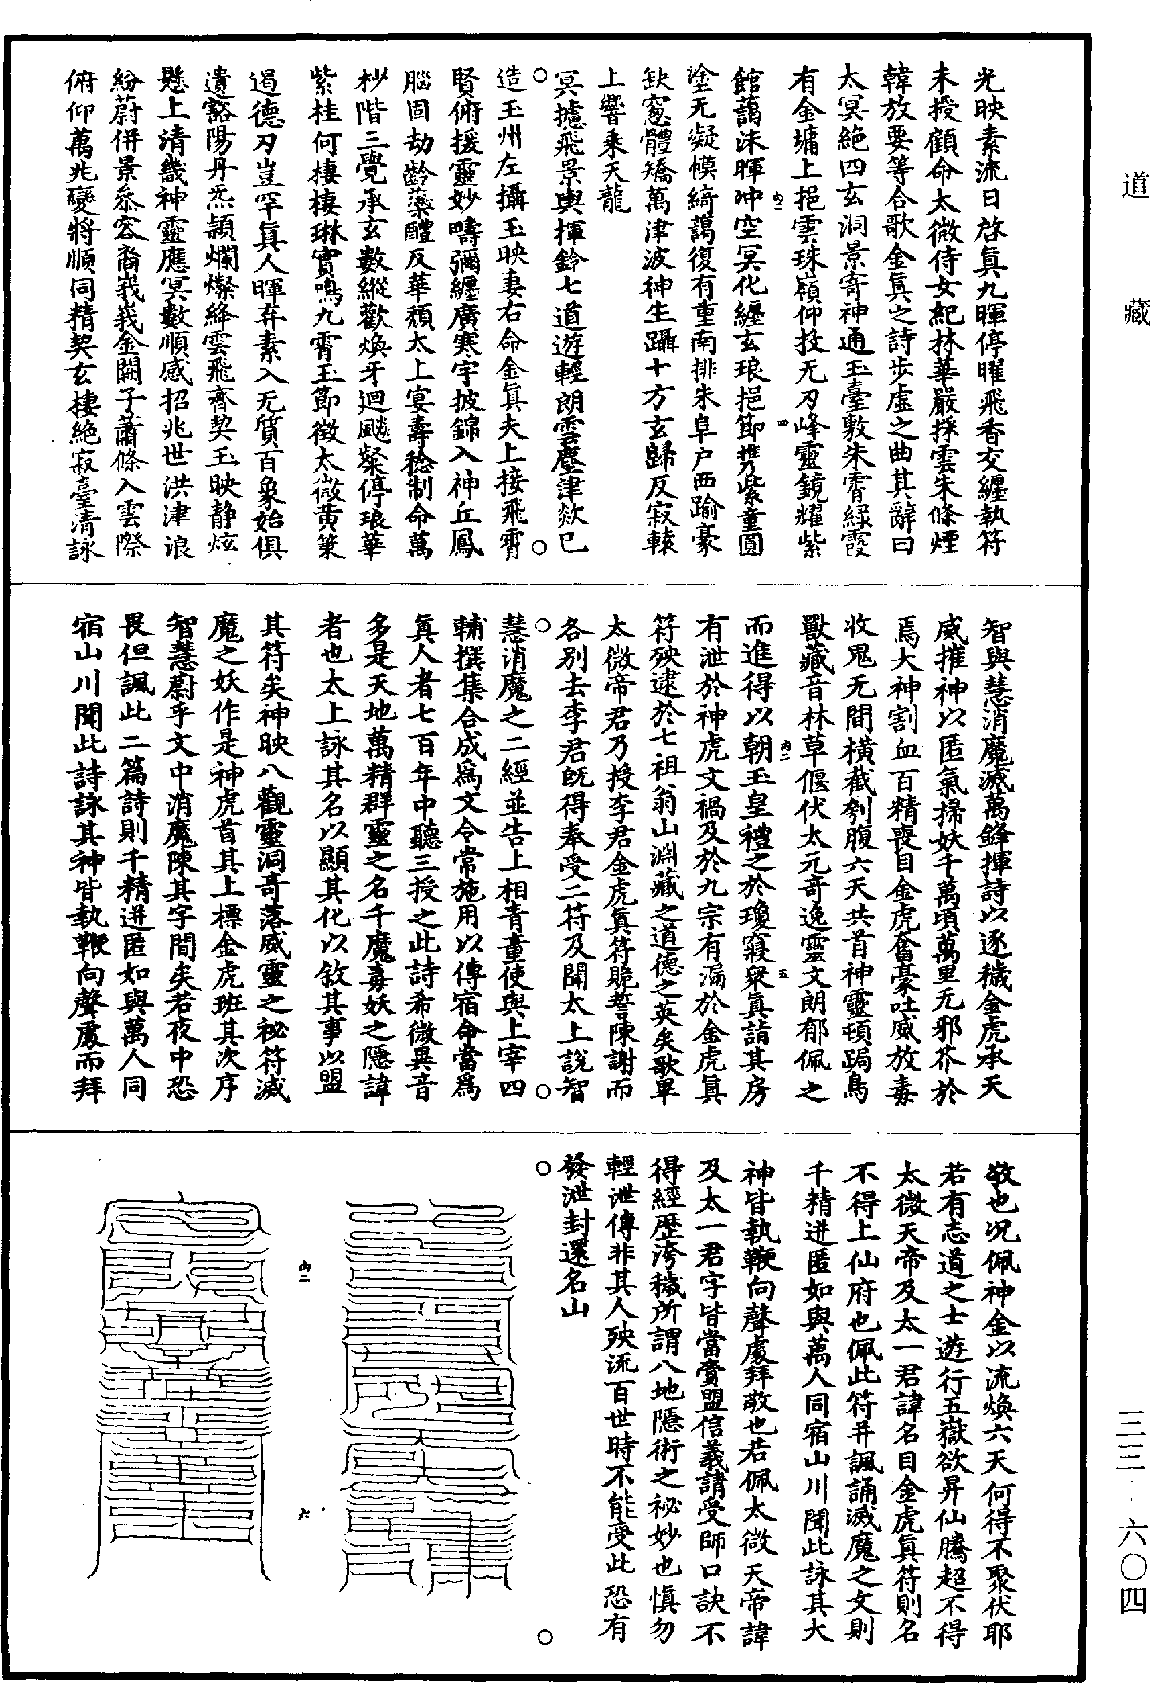 道藏
三三·六〇四
光映素流日啓真九暉停曜飛香交纏執符
未授顧命太微侍女紀林華嚴採雲朱條煙
韓放要等合歌金真之詩步虛之曲其辭曰
太冥絕四玄洞景寄神通玉臺敷朱霄綠霞
有金墉上挹雲珠嶺仰投无刃峰靈鏡耀紫
館藹沫暉冲空冥化纏玄琅挹節攜紫童圓
塗无凝模綺藹復有重南排朱阜户西踰豪
缺窻體矯萬津波神生躡十方玄歸反寂轅
上響乘天龍
冥摅飛景輿揮鈴七道遊輕朗雲塵津欻已
造玉州左攝玉映妻右命金真夫上接飛霄
賢俯援靈妙疇彌纏廣寒宇披錦入神丘鳳
腦固劫齡蘂醴反華頹太上宴壽稔制命萬
杪階三覺承玄數縱歡煥牙迴飈粲停琅華
紫桂何棲棲琳實鳴九霄玉節徵太微黄策
遏德刃豈罕真人暉弃素入无質百象始俱
遺豁陽丹炁頴爛燦絳雲飛齊契玉映静炫
懸上清幾神靈應冥數順感招兆世洪津浪
紛蔚併景叅容裔羛羛金闕子蕭條入雲際
俯仰萬兆變將順同精契玄棲絕寂臺清詠
智與慧消魔滅萬鋒揮詩以逐穢金虎承天
威摧神以匿氣掃妖千萬頃萬里无邪介於
焉大神割血百精喪目金虎奮豪吐威放毒
收鬼无間橫截刳腹六天共首神靈頓跼鳥
獸藏音林草偃伏太元奇逸靈文朗郁佩之
而進得以朝玉皇禮之於瓊寢衆真請其房
有泄於神虎文禍及於九宗有漏於金虎真
符殃逮於七祖翁山淵藏之道德之英矣歌畢
太微帝君乃授李君金虎真符跪誓陳謝而
各別去李君既得奉受二符及聞太上說智
慧消魔之二經並告上相青童使與上宰四
輔撰集合成爲文令常施用以傳宿命當爲
真人者七百年中聽三授之此詩希微異音
多是天地萬精群靈之名千魔毒妖之隱諱
者也太上詠其名以顯其化以敘其事以盟
其符矣神映八觀靈洞哥落威靈之祕符滅
魔之妖作是神虎首其上標金虎班其次序
智慧蔚乎文中消魔陳其字間矣若夜中恐
畏但諷此二篇詩則千精迸匿如與萬人同
宿山川聞此詩詠其神皆執鞭向聲處而拜
敬也况佩神金以流煥六天何得不聚伏耶
若有志道之士遊行五嶽欲昇仙騰超不得
太微天帝及太一君諱名目金虎真符則名
不得上仙府也佩此符并諷誦滅魔之文則
千精迸匿如與萬人同宿山川聞此詠其大
神皆執鞭向聲處拜敬也若佩太微天帝諱
及太一君字皆當賫盟信義請受師口訣不
得經歷洿穢所謂八地隱術之祕妙也慎勿
輕泄傳非其人殃流百世時不能受此恐有
發泄封還名山